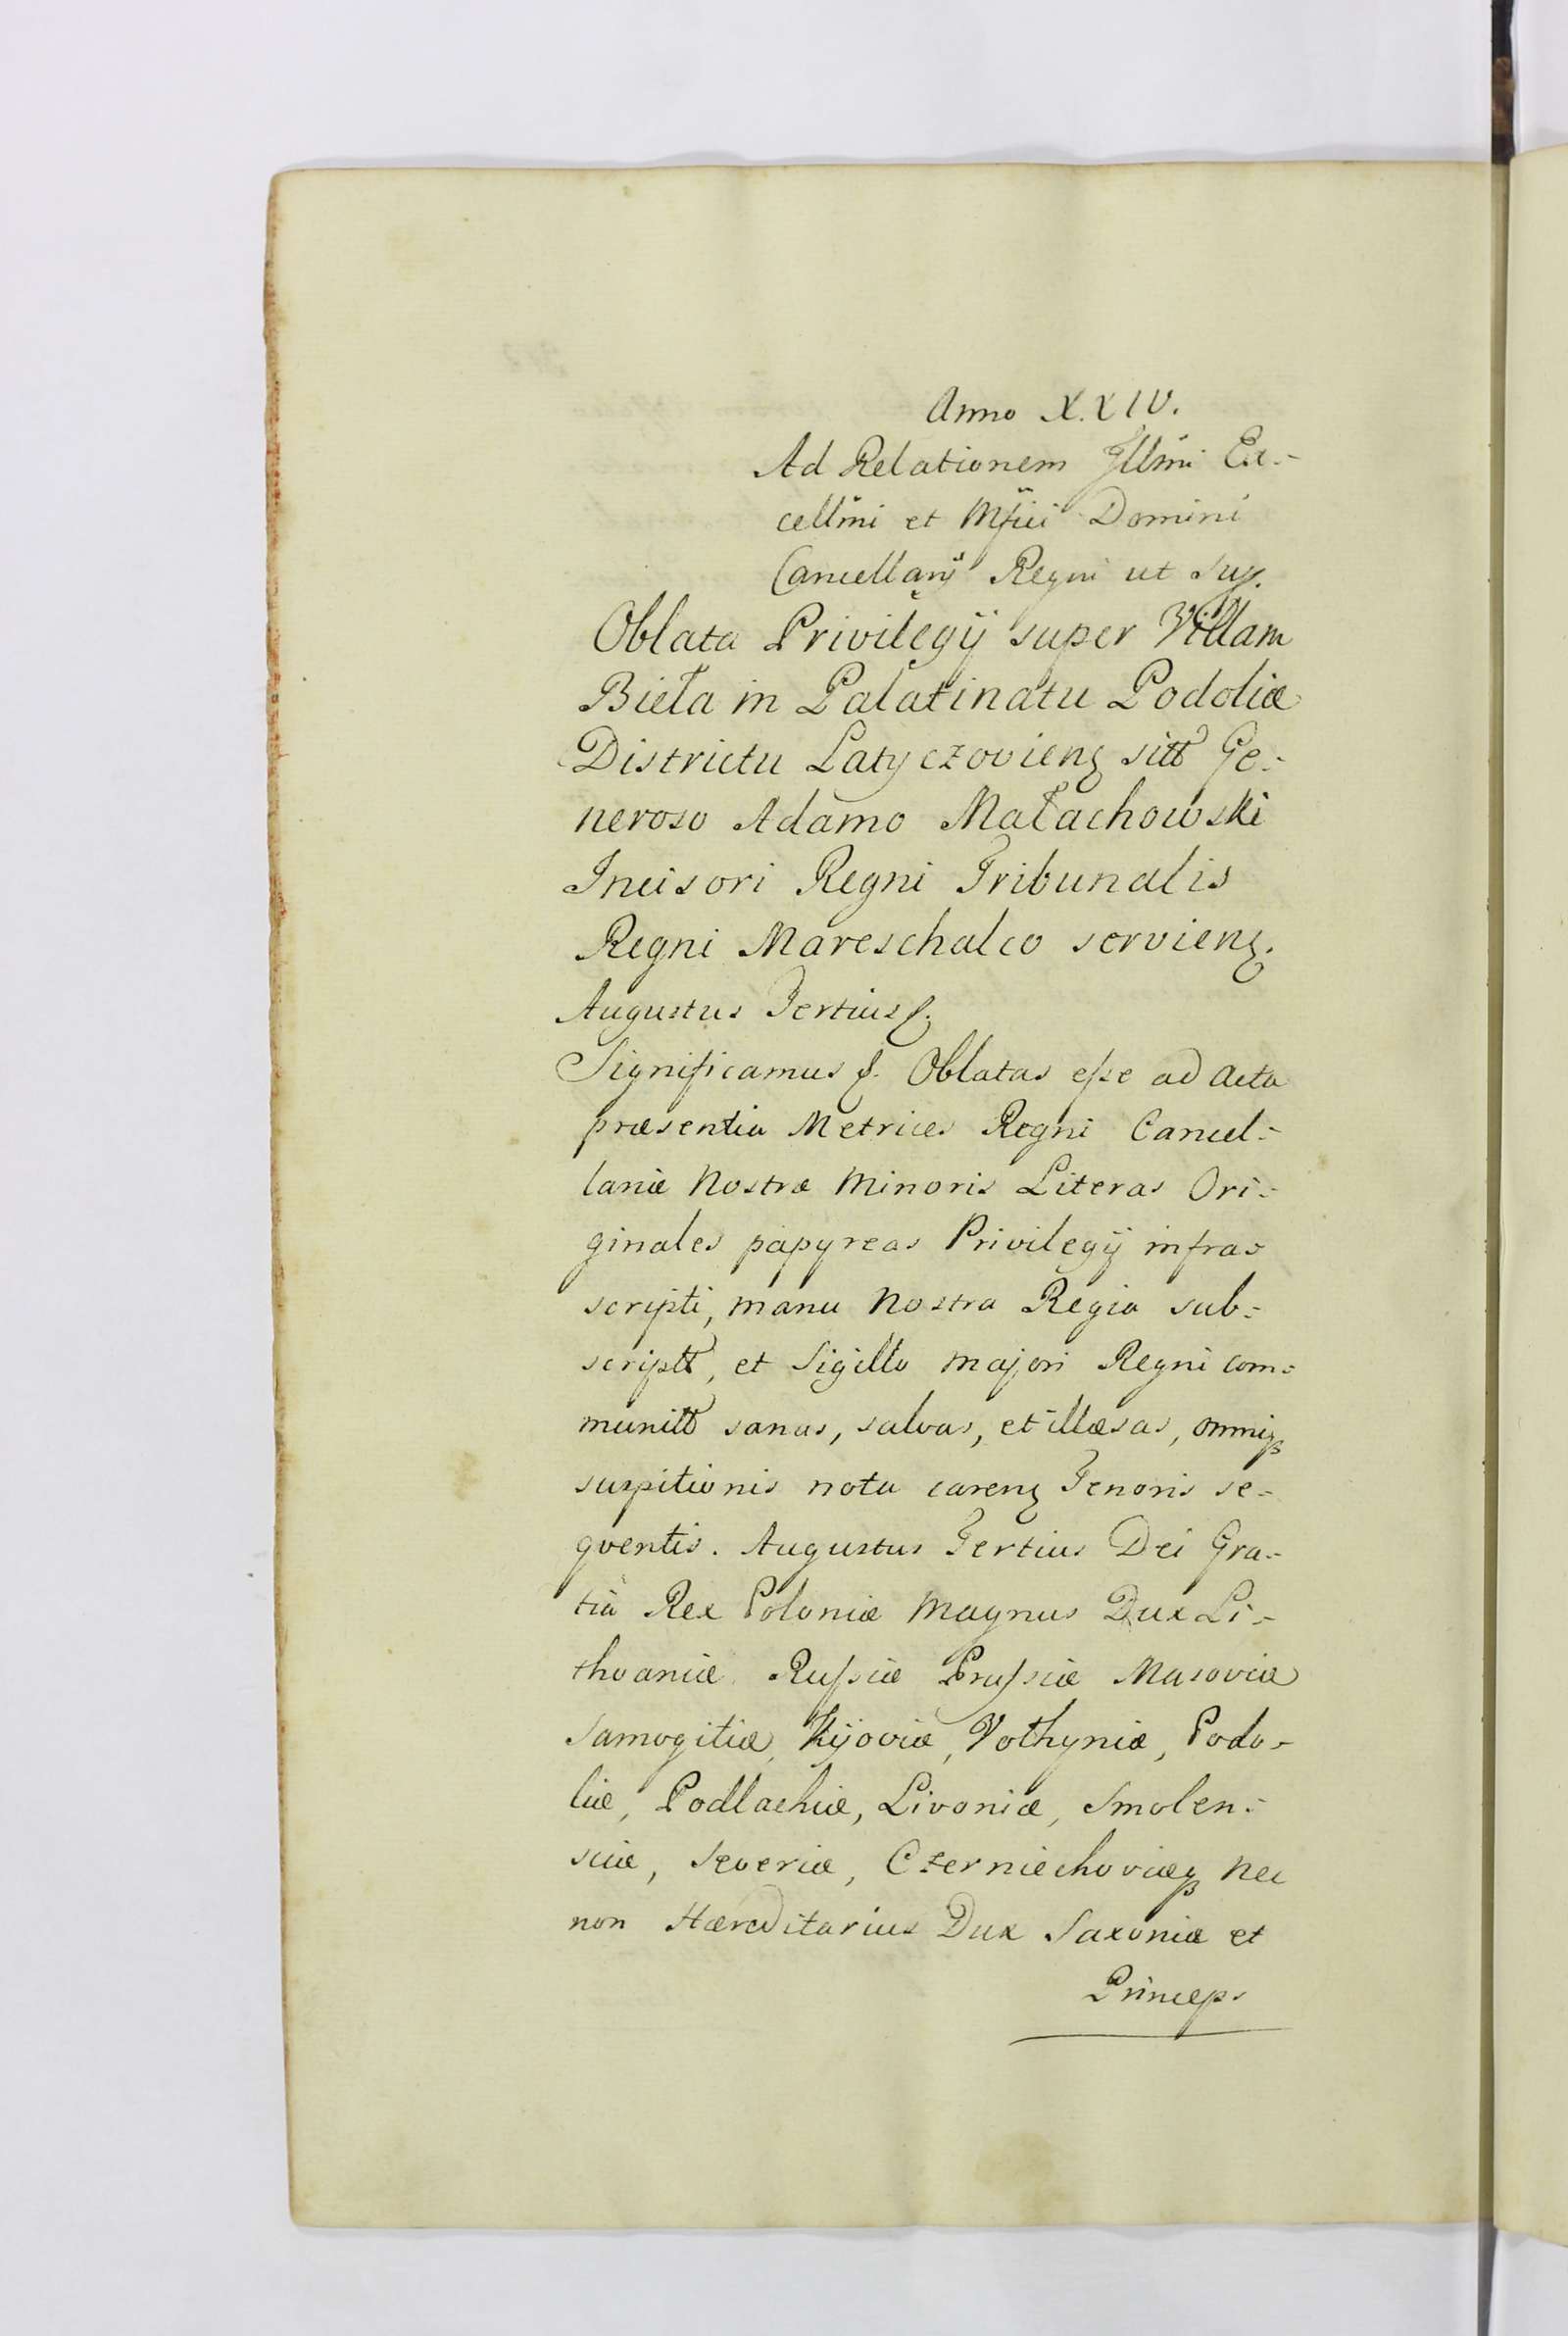 Anno X.XIV.
Ad Relationem Jllmi Ex-
cellmi et Mfici Domini
Cancellarij Regni ut sup.
Oblata Privilegij super Villam
Bieła in Palatinatu Podoliæ
Districtu Latyczovienʒ sitt Ge-
neroso Adamo Małachowski
Jncisori Regni Tribunalis
Regni Mareschalco servienʒ.
Augustus Tertius ſ.
Significamus ſ. Oblatas eſse ad Acta
præsentia Metrices Regni Cancel-
lariæ Nostræ Minoris Literas Ori-
ginales papyreas Privilegij infra-
scripti, manu Nostra Regia sub-
scriptt, et Sigillo majori Regni com-
munitt sanas, salvas, et illæsas, omniqβ
suspitionis nota carenʒ Tenoris se-
qventis. Augustus Tertius Dei Gra-
tia Rex Poloniæ Magnus Dux Li-
thvaniæ Ruſsiæ Pruſsiæ Masoviæ
Samogitiæ, Kijoviæ, Vołhyniæ, Podo-
liæ, Podlachiæ, Livoniæ, Smolen-
sciæ, Severiæ, Czerniechoviæqβ nec
non Hæreditarius Dux Saxoniæ et
Princeps